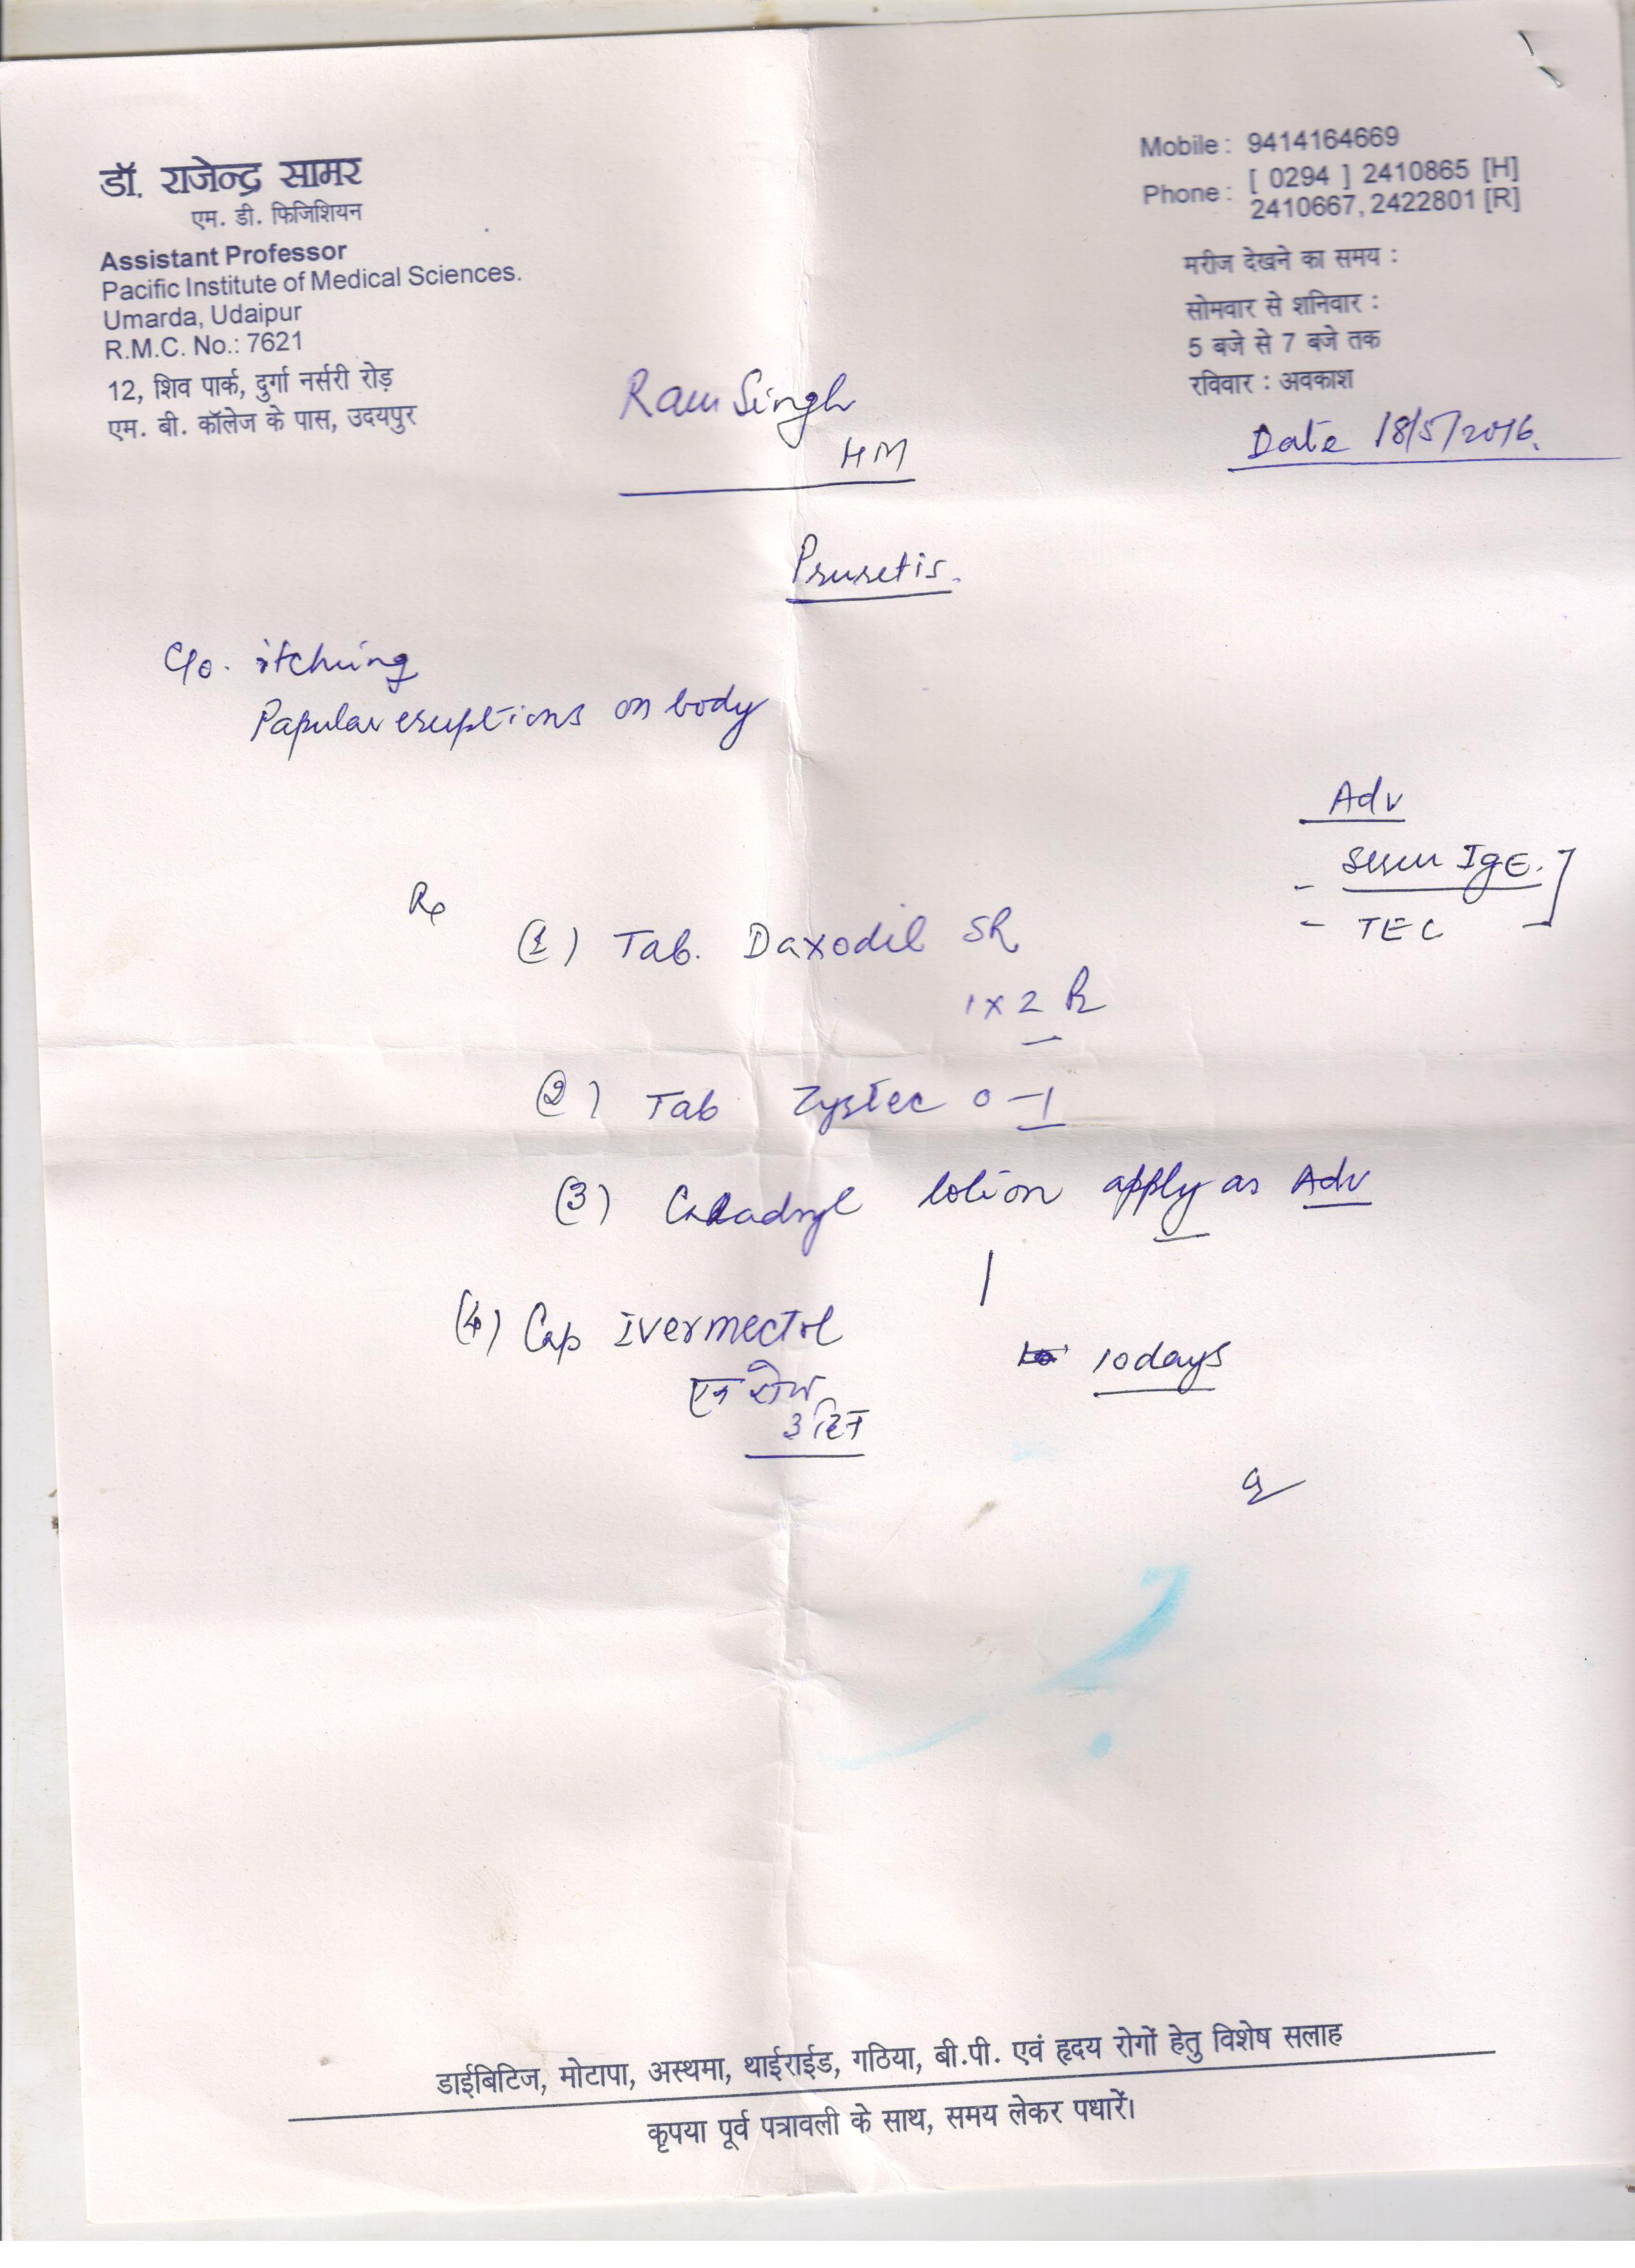 डॉ. राजेन्द्र सामर
एम. डी. फिजिशियन
Assistant Professor
Pacific Institute of Medical Sciences.
Umarda, Udaipur
R.M.C. No.: 7621
12, शिव पार्क, दुर्गा नर्सरी रोड़
एम. बी. कॉलेज के पास, उदयपुर
Mobile : 9414164669
Phone : [ 0294 ] 2410865 [H]
2410667, 2422801 [R]
मरीज देखने का समय :
सोमवार से शनिवार :
5 बजे से 7 बजे तक
रविवार : अवकाश
Date 18/5/2016.
Ram Singh
HM
Pruretis.
C/o. itching
Papular eruptions on body
Adv
- Serum IgE.
- TEC
Rx
(1) Tab. Daxodil SR
1 x 2
(2) Tab Zyrtec 0-1
(3) Caladryl lotion apply as Adv
(4) Cap Ivermectol
एक रोज
3 दिन
10 days
डाईबिटिज, मोटापा, अस्थमा, थाईराईड, गठिया, बी.पी. एवं हृदय रोगों हेतु विशेष सलाह
कृपया पूर्व पत्रावली के साथ, समय लेकर पधारें।